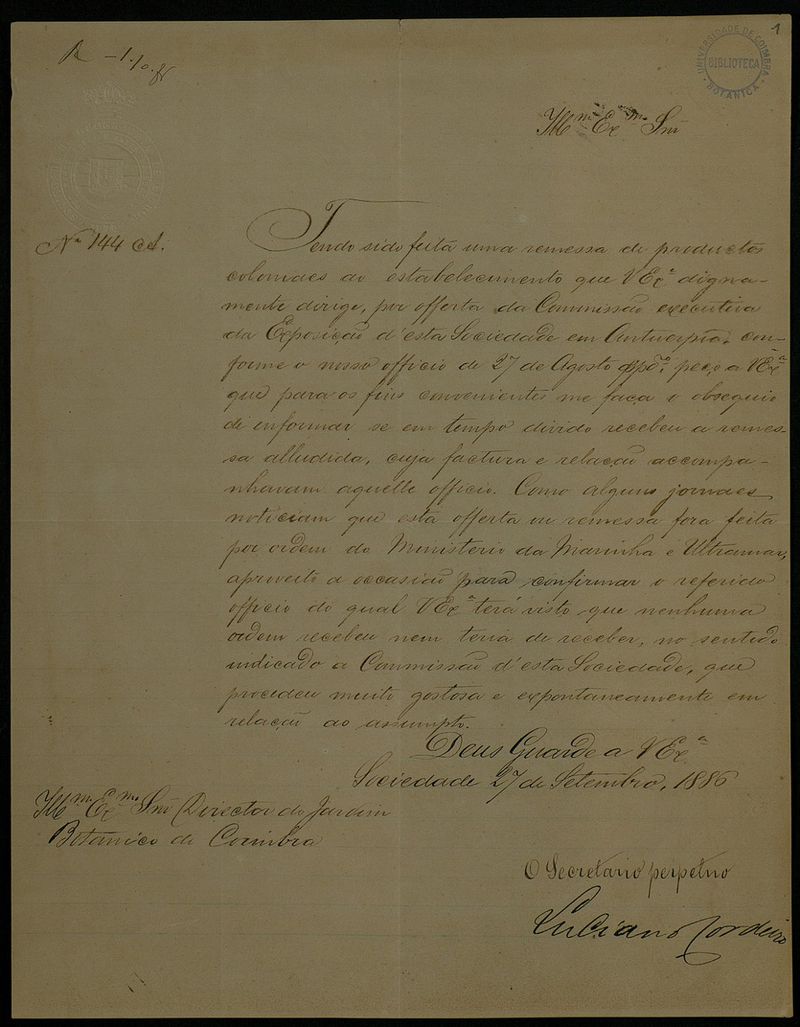 R - 1.10.85
1
UNIVERSIDADE DE COIMBRA
BIBLIOTECA
BOTANICA
Illm.o Exm.o Snr
Nº 144 A.
Tendo sido feita uma remessa de productos
coloniaes ao estabelecimento que V Ex.ª digna-
mente dirige, por offerta da Commissão executiva
da Exposição d'esta Sociedade em Antuerpia, con-
forme o nosso officio de 27 de Agosto peço a V Ex.ª
que para os fins convenientes me faça o obsequio
de informar se em tempo divido recebeu a remes-
sa alludida, cuja factura e relação accompa-
nhavam aquelle officio. Como alguns jornaes
noticiam que esta offerta ou remessa fora feita
por ordem do Ministerio da Marinha e Ultramar,
aproveito a occasião para confirmar o referido
officio do qual V Ex.ª terá visto que nenhuma
ordem recebeu nem teria de receber, no sentido
indicado a Commissão d'esta Sociedade, que
procedeu muito gostosa e expontaneamente em
relação ao assumpto.
Deus Guarde a V Ex.ª
Sociedade 27 de Setembro, 1886
Illm.o Exm.o Snr Director do Jardim
Botanico de Coimbra
O Secretario perpetuo
Luciano Cordeiro